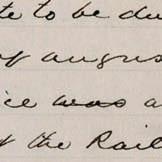 te to be du
of augus
ice was a
of the Rail